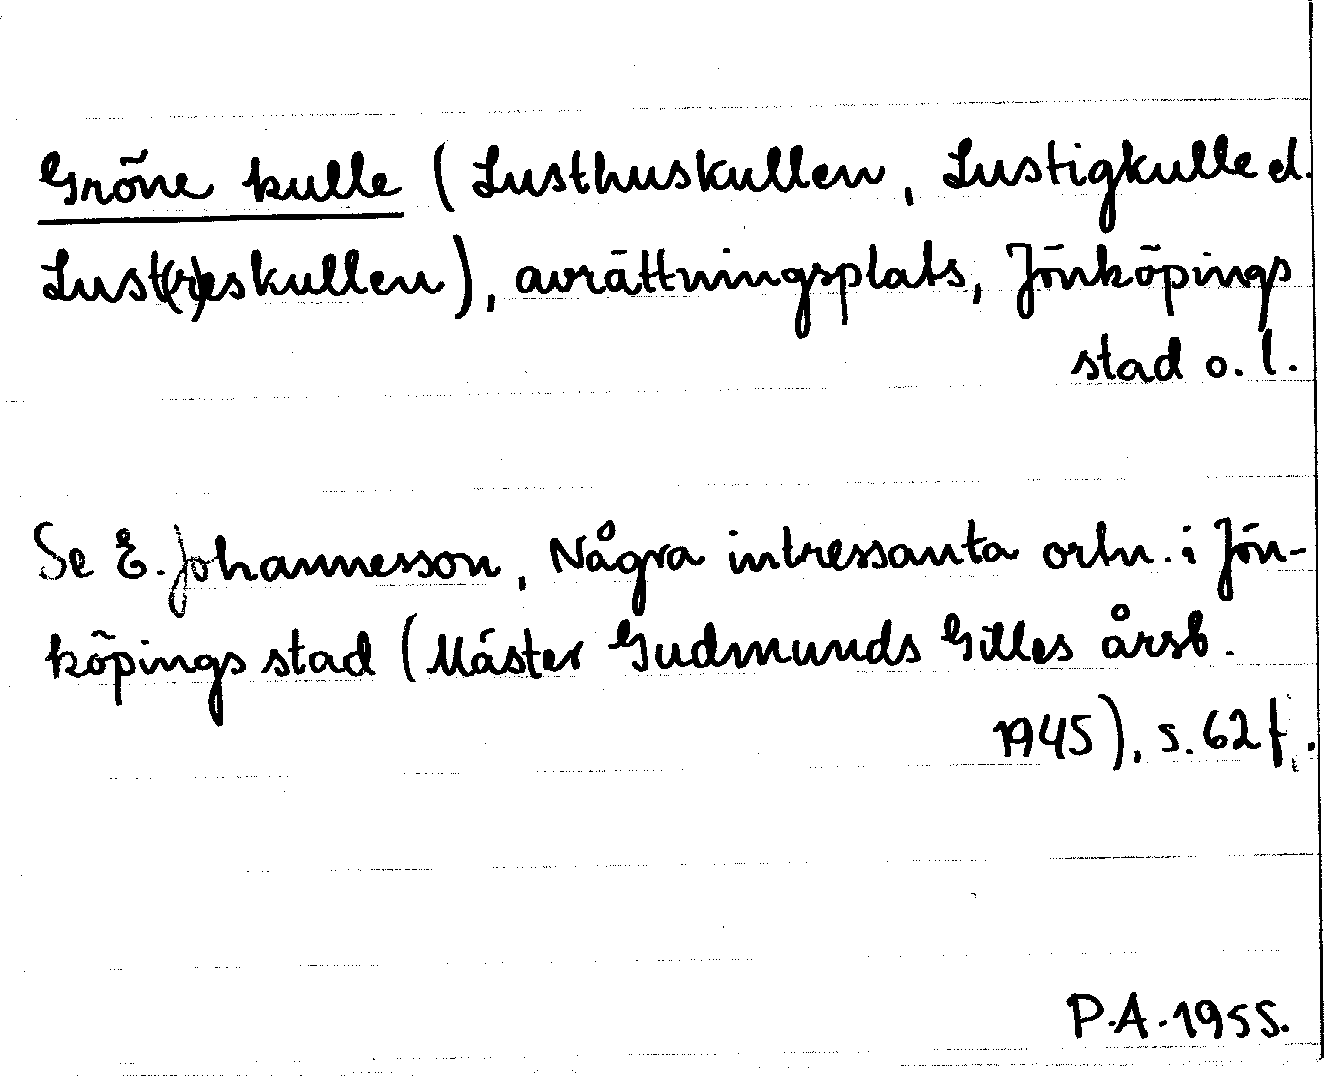 Gröne kulle (Lusthuskullen, Lustigkulle el.
Lust(r)eskullen), avrättningsplats, Jönköpings
stad o. l.
Se E. Johannesson, Några intressanta ortn. i Jön-
köpings stad (Mäster Gudmunds Gilles årsb.
1945), s. 62 f.
P.A. 1955.